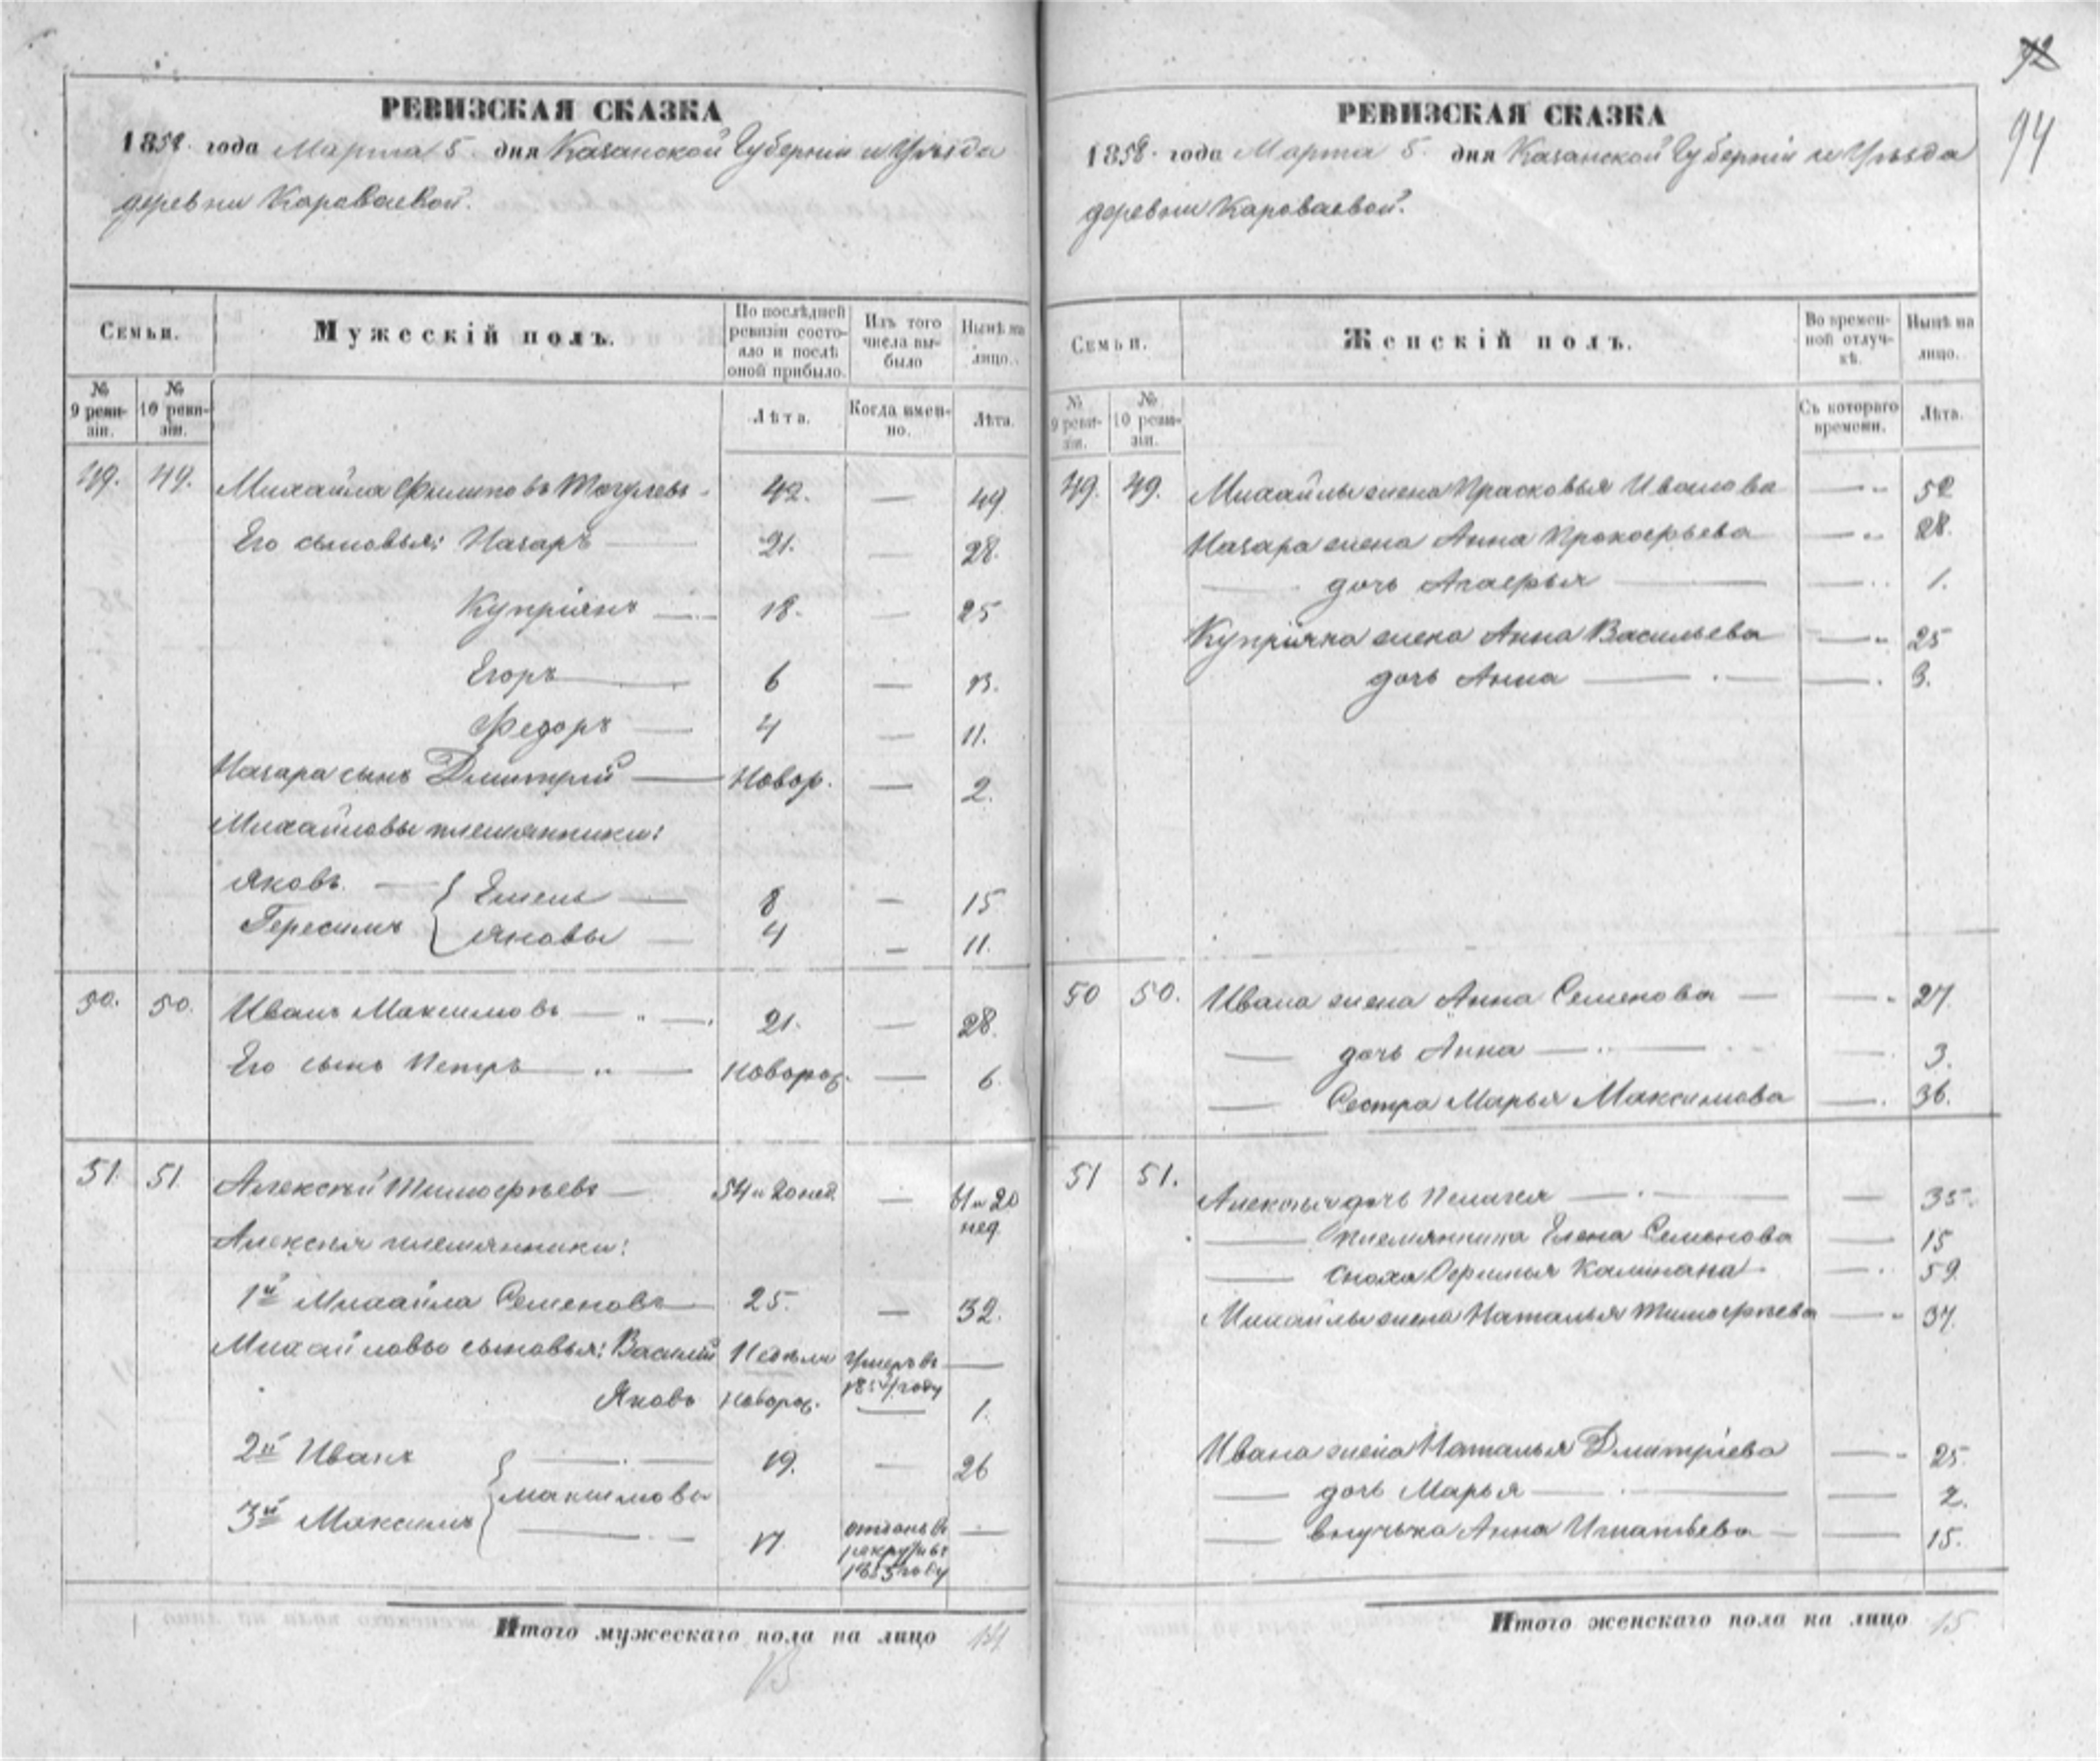 92
94
РЕВИЗСКАЯ СКАЗКА
1858 года Марта 5 дня Казанской Губернии и Уѣзда
деревни Караваевой.
Семьи.
Мужескій полъ.
По послѣдней ревизіи состояло и послѣ оной прибыло.
Изъ того числа выбыло
Нынѣ на лицо.
№ 9 ревизіи.
№ 10 ревизіи.
Лѣта.
Когда именно.
Лѣта.
49. 49. Михайла Филиповъ 42. — 49
Его сыновья: Назаръ — 21. — 28.
Купріянъ — 18. — 25
Егоръ — 6 — 13.
Федоръ — 4 — 11.
Назара сынъ Дмитрій — Новор. — 2.
Михайловы племянники:
Яковъ — Емель — 8 — 15
Гересимъ Яковы — 4 — 11.
50. 50. Иванъ Максимовъ — 21. — 28.
Его сынъ Петръ — новорож. — 6
51. 51 Алексѣй Тимофѣевъ — 54 и 20 нед. — 61 и 20 нед.
Алексѣя племянники:
1й Михайла Семеновъ — 25. — 32.
Михайловы сыновья: Василій Недѣли Умеръ въ 1854 году —
Яковъ новорож. — 1.
2й Иванъ — 19. — 26
Максимовы
3й Максимъ — 17. отданъ въ рекруты въ 1855 году —
Итого мужескаго пола на лицо 14
13
РЕВИЗСКАЯ СКАЗКА
1858 года Марта 5 дня Казанской Губерніи и Уѣзда
деревни Караваевой.
Семьи.
Женскій полъ.
Во временной отлучкѣ.
Нынѣ на лицо.
№ 9 ревизіи.
№ 10 ревизіи.
Съ котораго времени.
Лѣта.
49. 49. Михайлы жена Прасковья Иванова — 52
Назара жена Анна Прокофьева — 28.
— дочь Агафья — 1.
Купріяна жена Анна Васильева — 25
дочь Анна — 3.
50 50. Ивана жена Анна Семенова — 27.
— дочь Анна — 3.
— Сестра Марья Максимова — 36.
51 51. Алексѣя дочь Пелагея — 35.
— племянница Елена Семенова — 15
— Сноха Офимья Калинина — 59
Михайлы жена Наталья Тимофѣева — 37.
Ивана жена Наталья Дмитріева — 25.
— дочь Марья — 2.
— внучька Анна Игнатьева — 15.
Итого женскаго пола на лицо 15